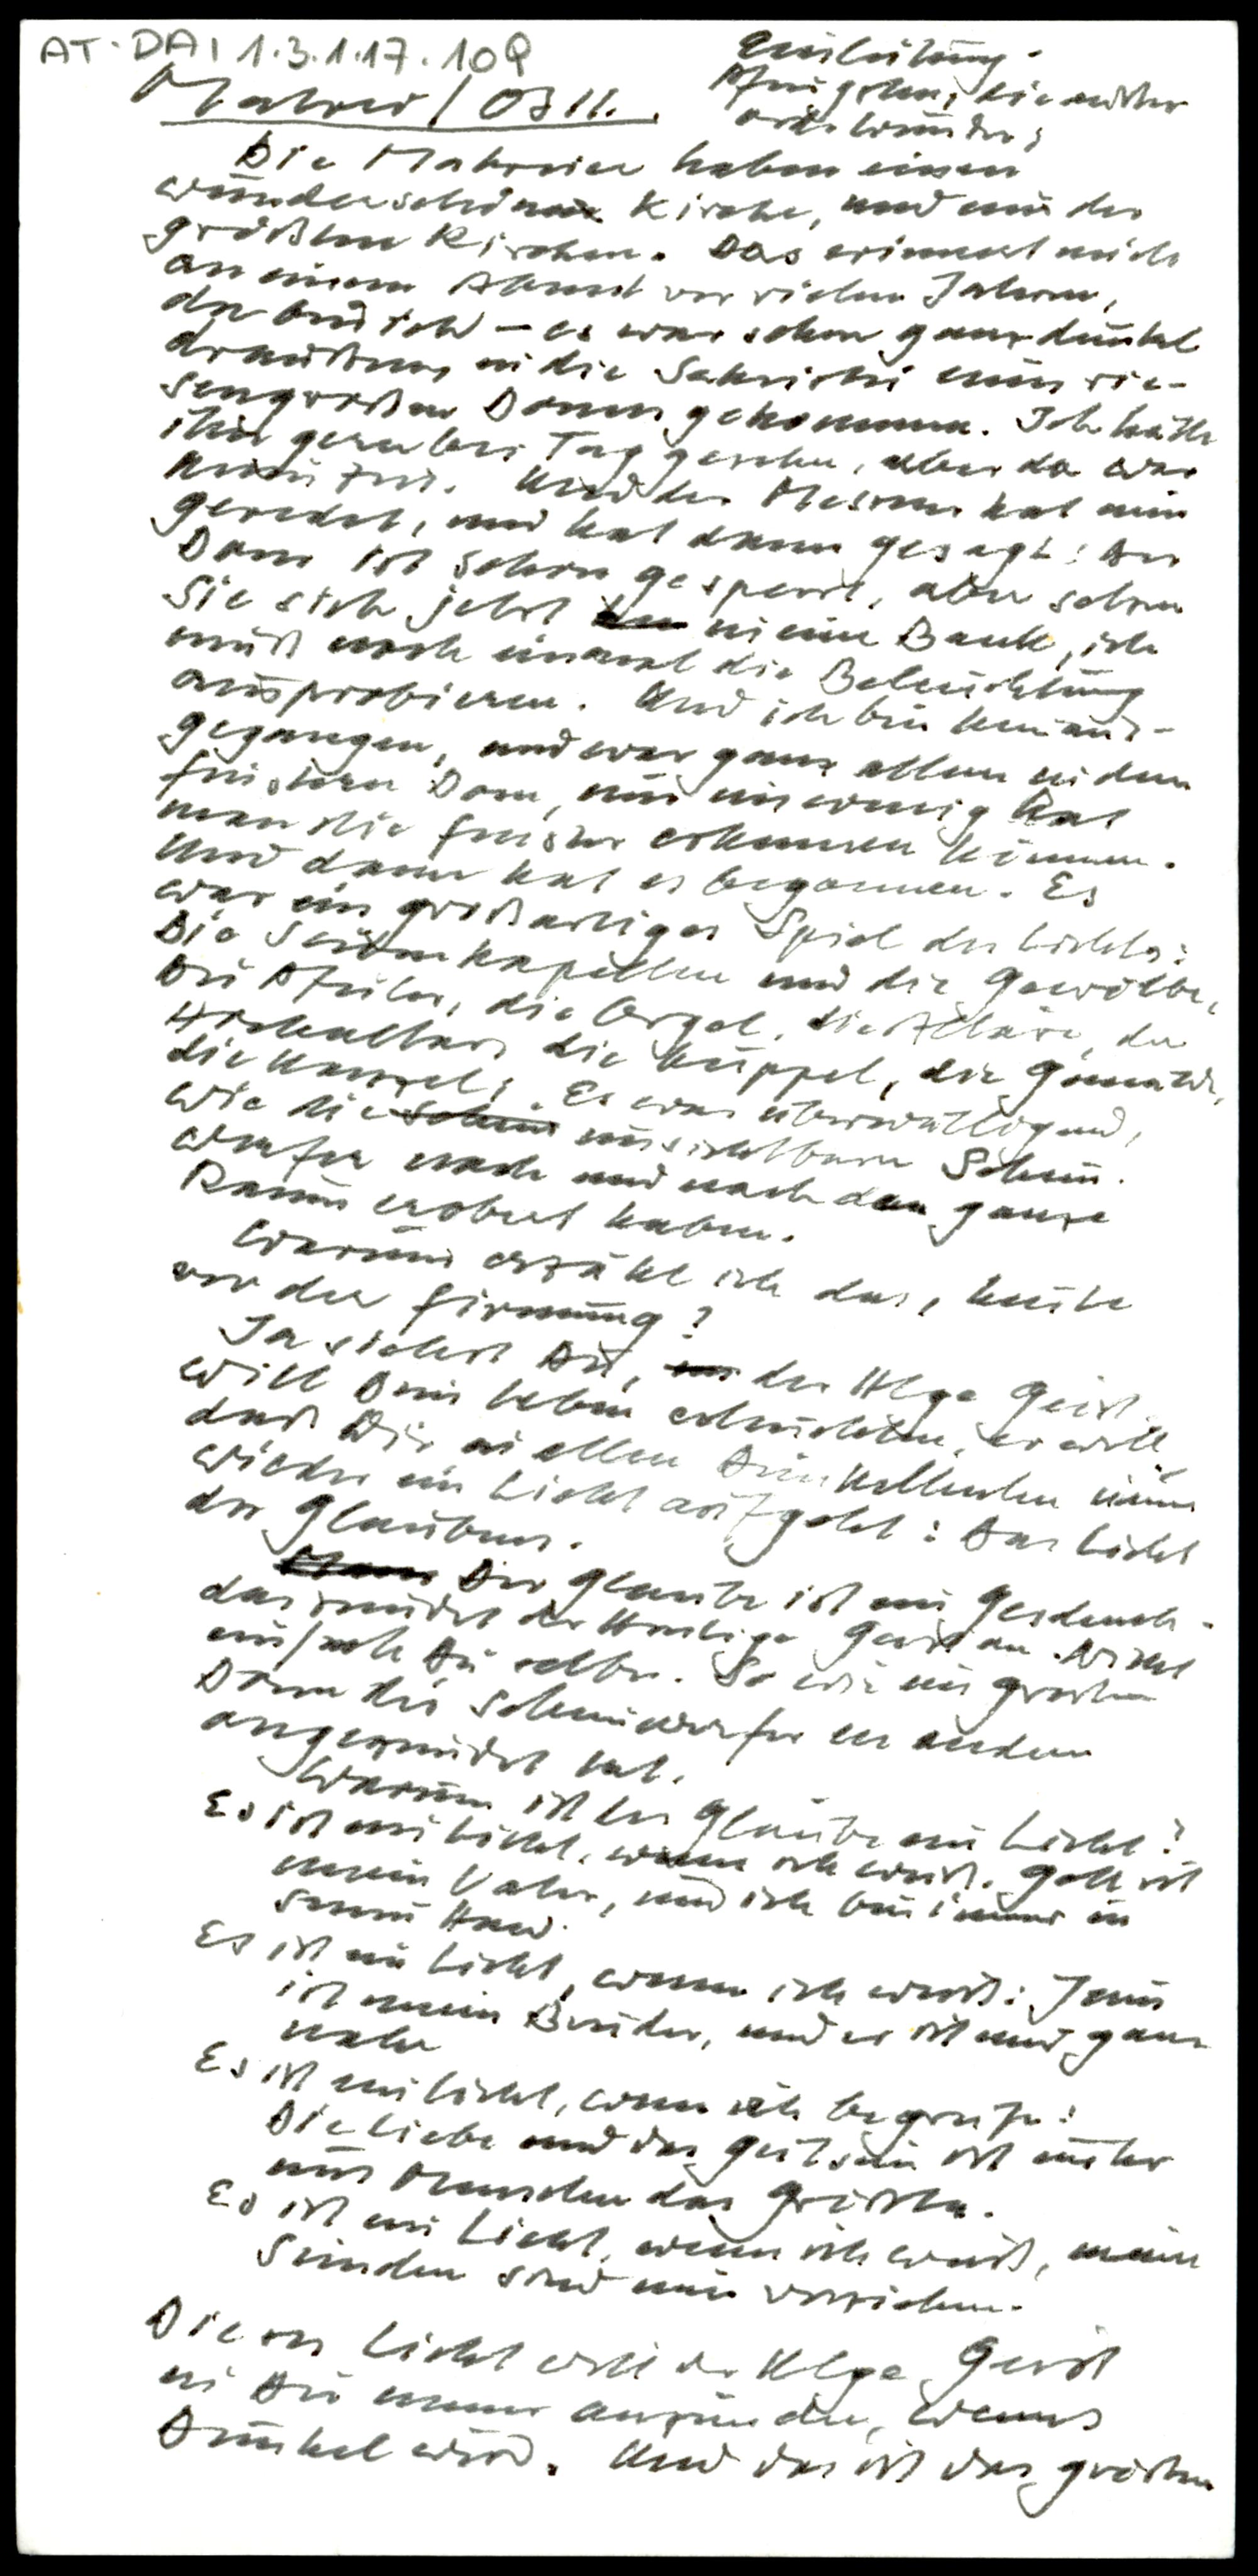 AT-DAI 1.3.1.17.109
Einleitung.
Pfingsten, die
Matrei / OTII.
Die Matreier haben einen
wunderschöne Kirche, und eine der
größten Kirchen. Das erinnert mich
an einem Abend vor vielen Jahren,
da bin ich – es war schon ganz dunkel
draußen, in die Sakristei eines rie-
sengroßen Domes gekommen. Ich hätte
ihn gerne bei Tag gesehen, aber da war
keine Zeit. Und der Mesner hat mir
geredet, und hat dann gesagt: Der
Dom ist schon gesperrt, aber setzen
Sie sich jetzt in eine Bank, ich
muß noch einmal die Beleuchtung
ausprobieren. Und ich bin hinaus-
gegangen, und war ganz allein in dem
finstern Dom, nur ein wenig hat
man die Fenster erkennen können.
Und dann hat es begonnen. Es
war ein großartiges Spiel des Lichts:
Die Seitenkapellen und die Gewölbe,
die Pfeiler, die Orgel, die Altäre, der
Hochaltar, die Kuppel, die Gemälde,
die Kanzel. Es war überwältigend,
wie die unsichtbaren Schein-
werfer nach und nach den ganze
Raum erobert haben.
Warum erzähl ich das, heute
vor der Firmung?
Ja siehst Du, der Hlge Geist
will Dein Leben erleuchten, er will
daß Dir in allen Dunkelheiten immer
wieder ein Licht aufgeht: Das Licht
des Glaubens.
Der Glaube ist ein Geschenk.
das zündet der Heilige Geist an. Nicht
einfach Du selber. So wie im großen
Dom die Scheinwerfer ein anderer
angezündet hat.
Warum ist der Glaube ein Licht?
Es ist ein Licht, wenn ich weiß. Gott ist
mein Vater, und ich bin immer in
seiner Hand.
Es ist ein Licht, wenn ich weiß: Jesus
ist mein Bruder, und er ist mir ganz
nahe
Es ist ein Licht, wenn ich begreife:
Die Liebe und das Gutsein ist unter
uns Menschen das Größte.
Es ist ein Licht, wenn ich weiß, meine
Sünden sind mir verziehen.
Dieses Licht will der Hlge Geist
in Dir immer anzünden, wenns
Dunkel wird. Und das ist das größte